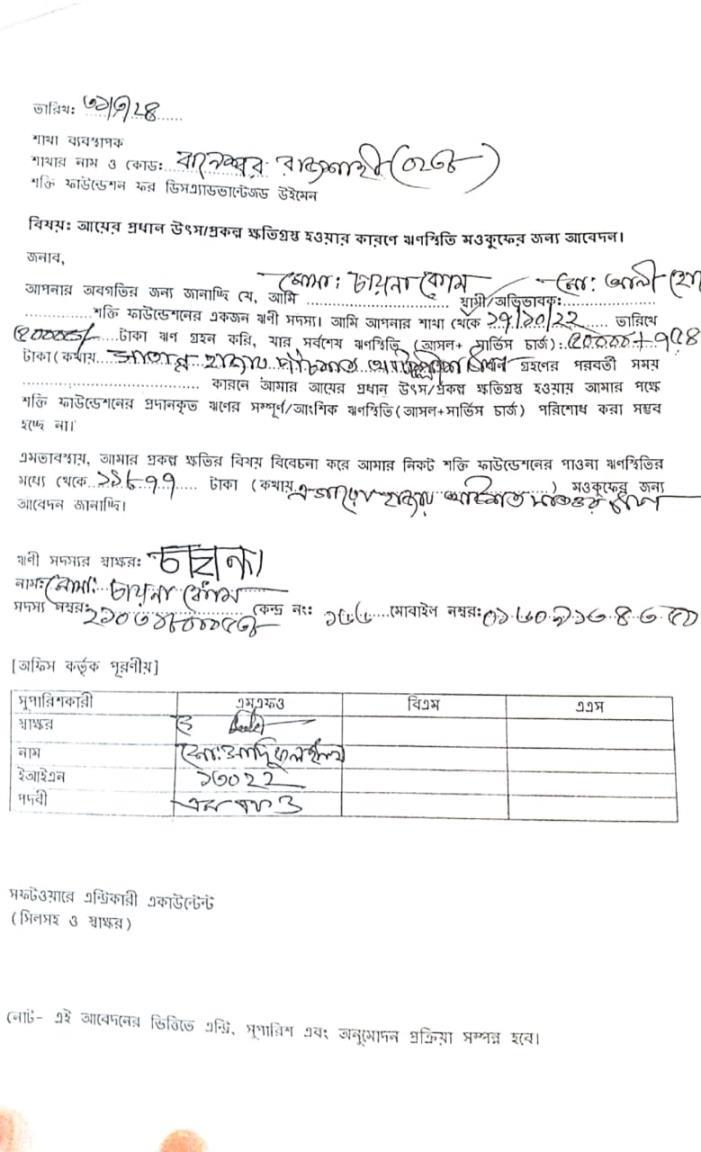 তারিখ: ৩১/৭/২৪
শাখা ব্যবস্থাপক
শাখার নাম ও কোড: বানেশ্বর রাজশাহী (০২৩৮)
শক্তি ফাউন্ডেশন ফর ডিসএ্যাডভান্টেজড উইমেন
বিষয়: আয়ের প্রধান উৎস/প্রকল্প ক্ষতিগ্রস্থ হওয়ার কারণে ঋণস্থিতি মওকুফের জন্য আবেদন।
জনাব,
আপনার অবগতির জন্য জানাচ্ছি যে, আমি মোসা: চায়না বেগম স্বামী/অভিভাবক: মো: আলী
শক্তি ফাউন্ডেশনের একজন ঋণী সদস্য। আমি আপনার শাখা থেকে ১৭/১০/২২ তারিখে
৫০০০০/ টাকা ঋণ গ্রহন করি, যার সর্বশেষ ঋণস্থিতি (আসল+ সার্ভিস চার্জ):
টাকা (কথায় হাজার পাঁচশত গ্রহণের পরবর্তী সময়
কারনে আমার আয়ের প্রধান উৎস/প্রকল্প ক্ষতিগ্রস্ত হওয়ায় আমার পক্ষে
শক্তি ফাউন্ডেশনের প্রদানকৃত ঋণের সম্পূর্ণ/আংশিক ঋণস্থিতি (আসল+সার্ভিস চার্জ) পরিশোধ করা সম্ভব
হচ্ছে না।
এমতাবস্থায়, আমার প্রকল্প ক্ষতির বিষয় বিবেচনা করে আমার নিকট শক্তি ফাউন্ডেশনের পাওনা ঋণস্থিতির
মধ্যে থেকে ১১৮৭৭ টাকা (কথায় এগারো হাজার আটশত সাতাত্তর টাকা) মওকুফের জন্য
আবেদন জানাচ্ছি।
ঋণী সদস্যর স্বাক্ষর: চায়না
নাম: মোসা: চায়না বেগম
সদস্য নম্বর: কেন্দ্র নং: ১৬৬ মোবাইল নম্বর:
[অফিস কর্তৃক পূরণীয়]
সুপারিশকারী এমএফও বিএম এএস
স্বাক্ষর
নাম
ইআইএন ১৩০২২
পদবী এমএফও
সফটওয়ারে এন্ট্রিকারী একাউন্টেন্ট
(সিলসহ ও স্বাক্ষর)
নোট- এই আবেদনের ভিত্তিতে এন্ট্রি, সুপারিশ এবং অনুমোদন প্রক্রিয়া সম্পন্ন হবে।